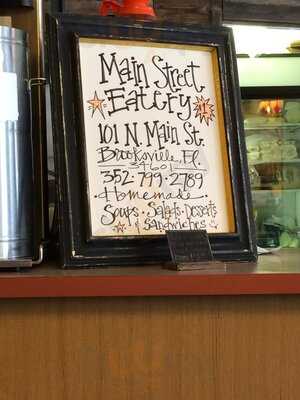 Main Street
Eatery
101 N. Main St.
Brooksville, FL
34601
352-799-2789
Homemade
Soups • Salads • Desserts
& Sandwiches